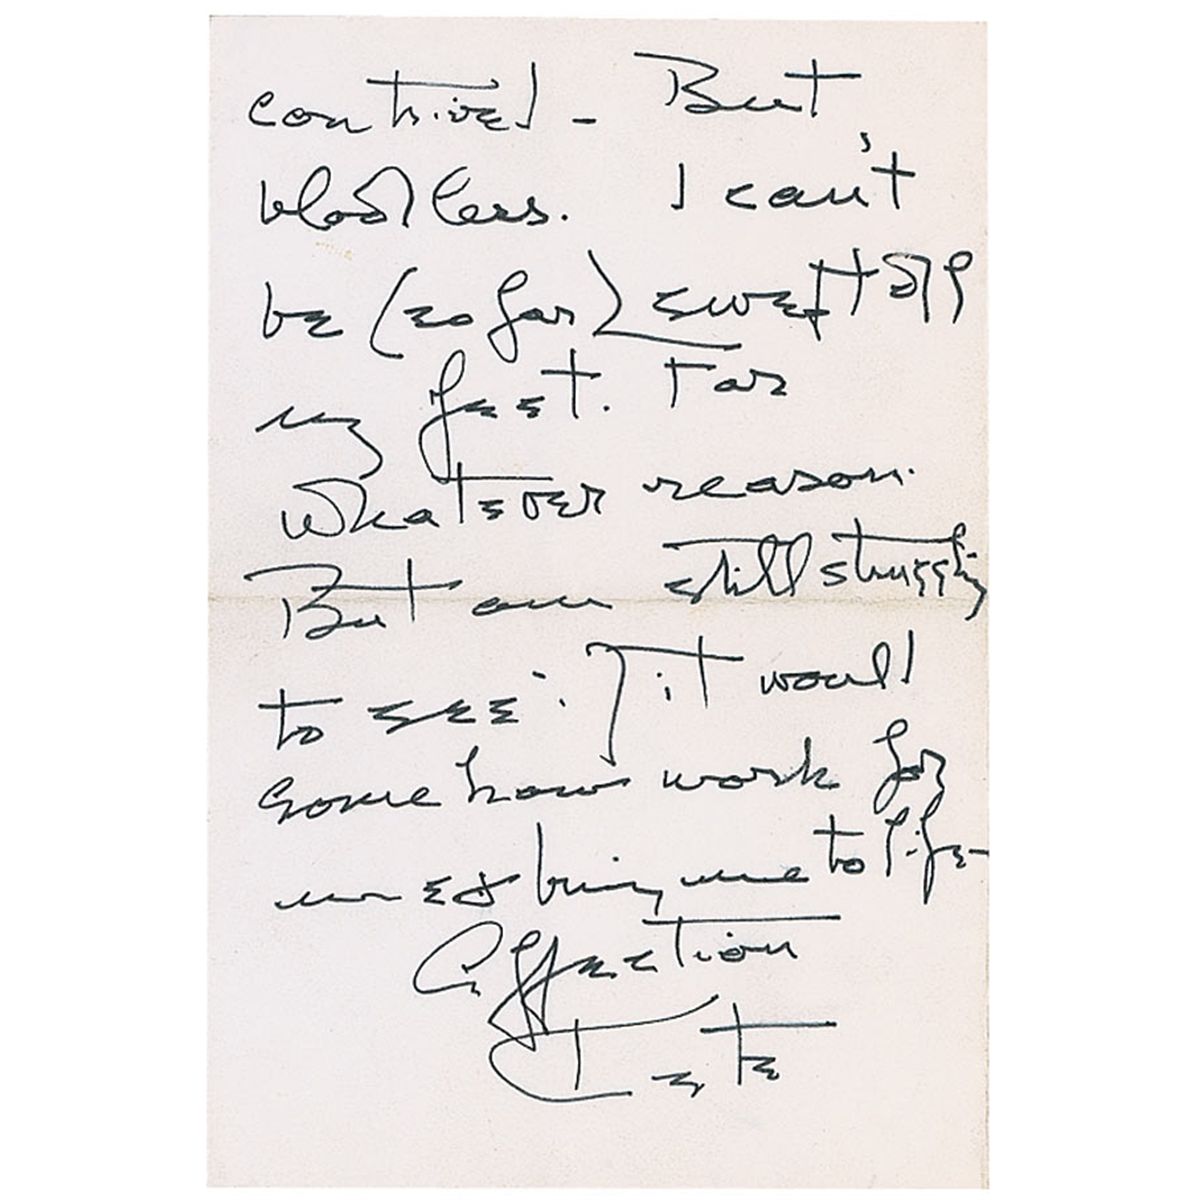 contrived - But,
bloodless. I can't
be (so far) swept off
my feet. For
whatever reason.
But am still struggling
to see: if it would
somehow work for
me & bring me to life -
Affection